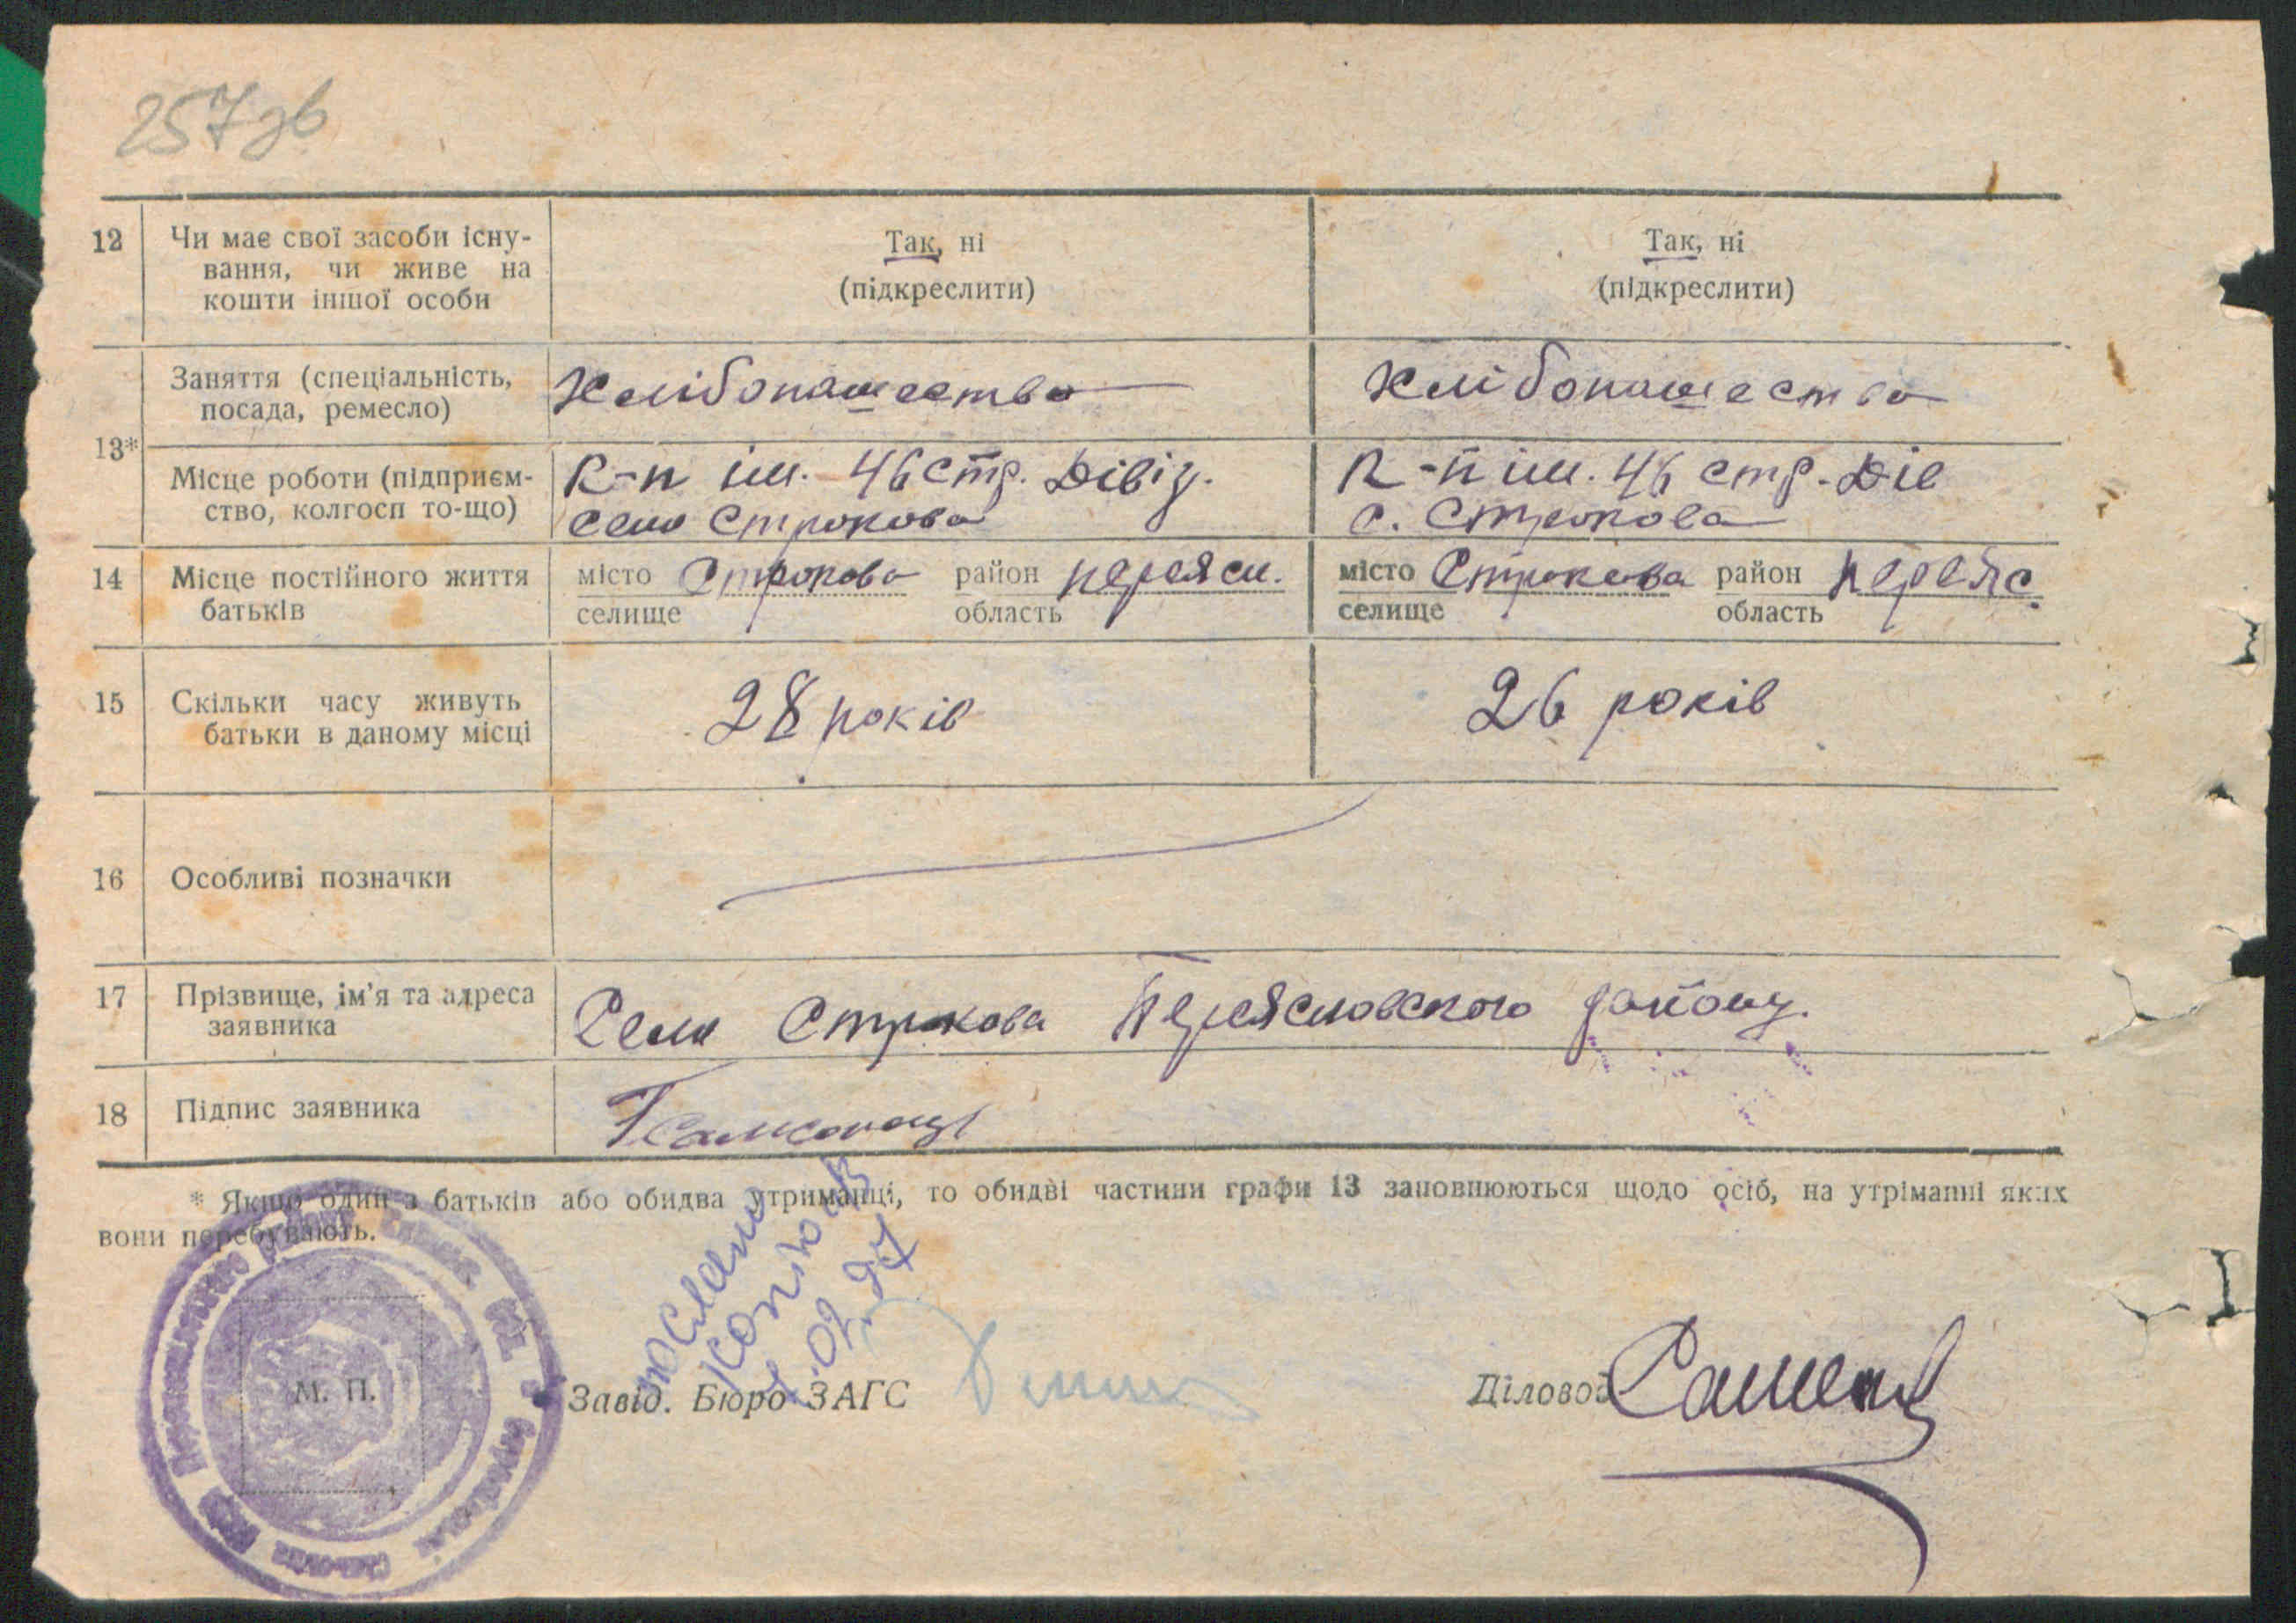 257зв
12 Чи має свої засоби існу- Так, ні Так, ні
вання, чи живе на (підкреслити) (підкреслити)
кошти іншої особи
Заняття (спеціальність, Хлібопашество Хлібопашество
посада, ремесло)
13*
Місце роботи (підприєм- К-п ім. 46 стр. Дівіз. К-п ім. 46 стр. Дів
ство, колгосп то-що) село Строкова с. Строкова
14 Місце постійного життя місто Строкова район Переясл. місто Строкова район Переяс.
батьків селище область селище область
15 Скільки часу живуть 28 років 26 років
батьки в даному місці
16 Особливі позначки
17 Прізвище, ім'я та адреса Село Строкова Переясловского району.
заявника
18 Підпис заявника
* Якщо один з батьків або обидва утриманці, то обидві частини графи 13 заповнюються щодо осіб, на утріманні яких
вони перебувають.
М. П.
Завід. Бюро ЗАГС Діловод